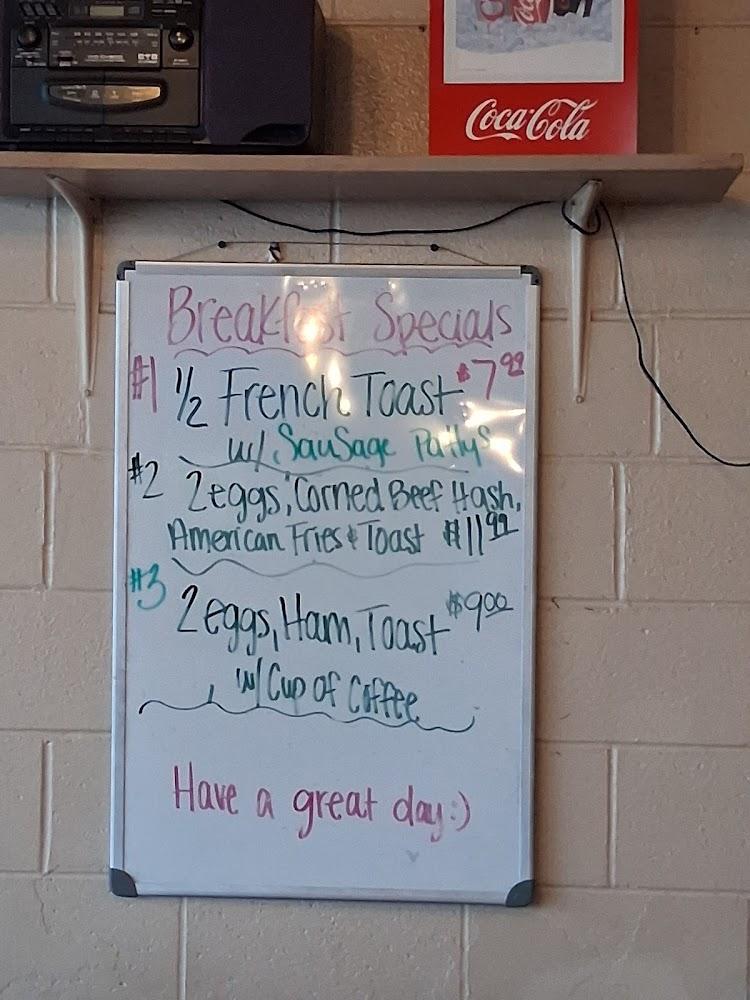 Coca-Cola
Breakfast Specials
#1 1/2 French Toast $7.99
w/ Sausage Pattys
#2 2 eggs, Corned Beef Hash,
American Fries & Toast $11.99
#3 2 eggs, Ham, Toast $9.00
w/ Cup of Coffee
Have a great day :)